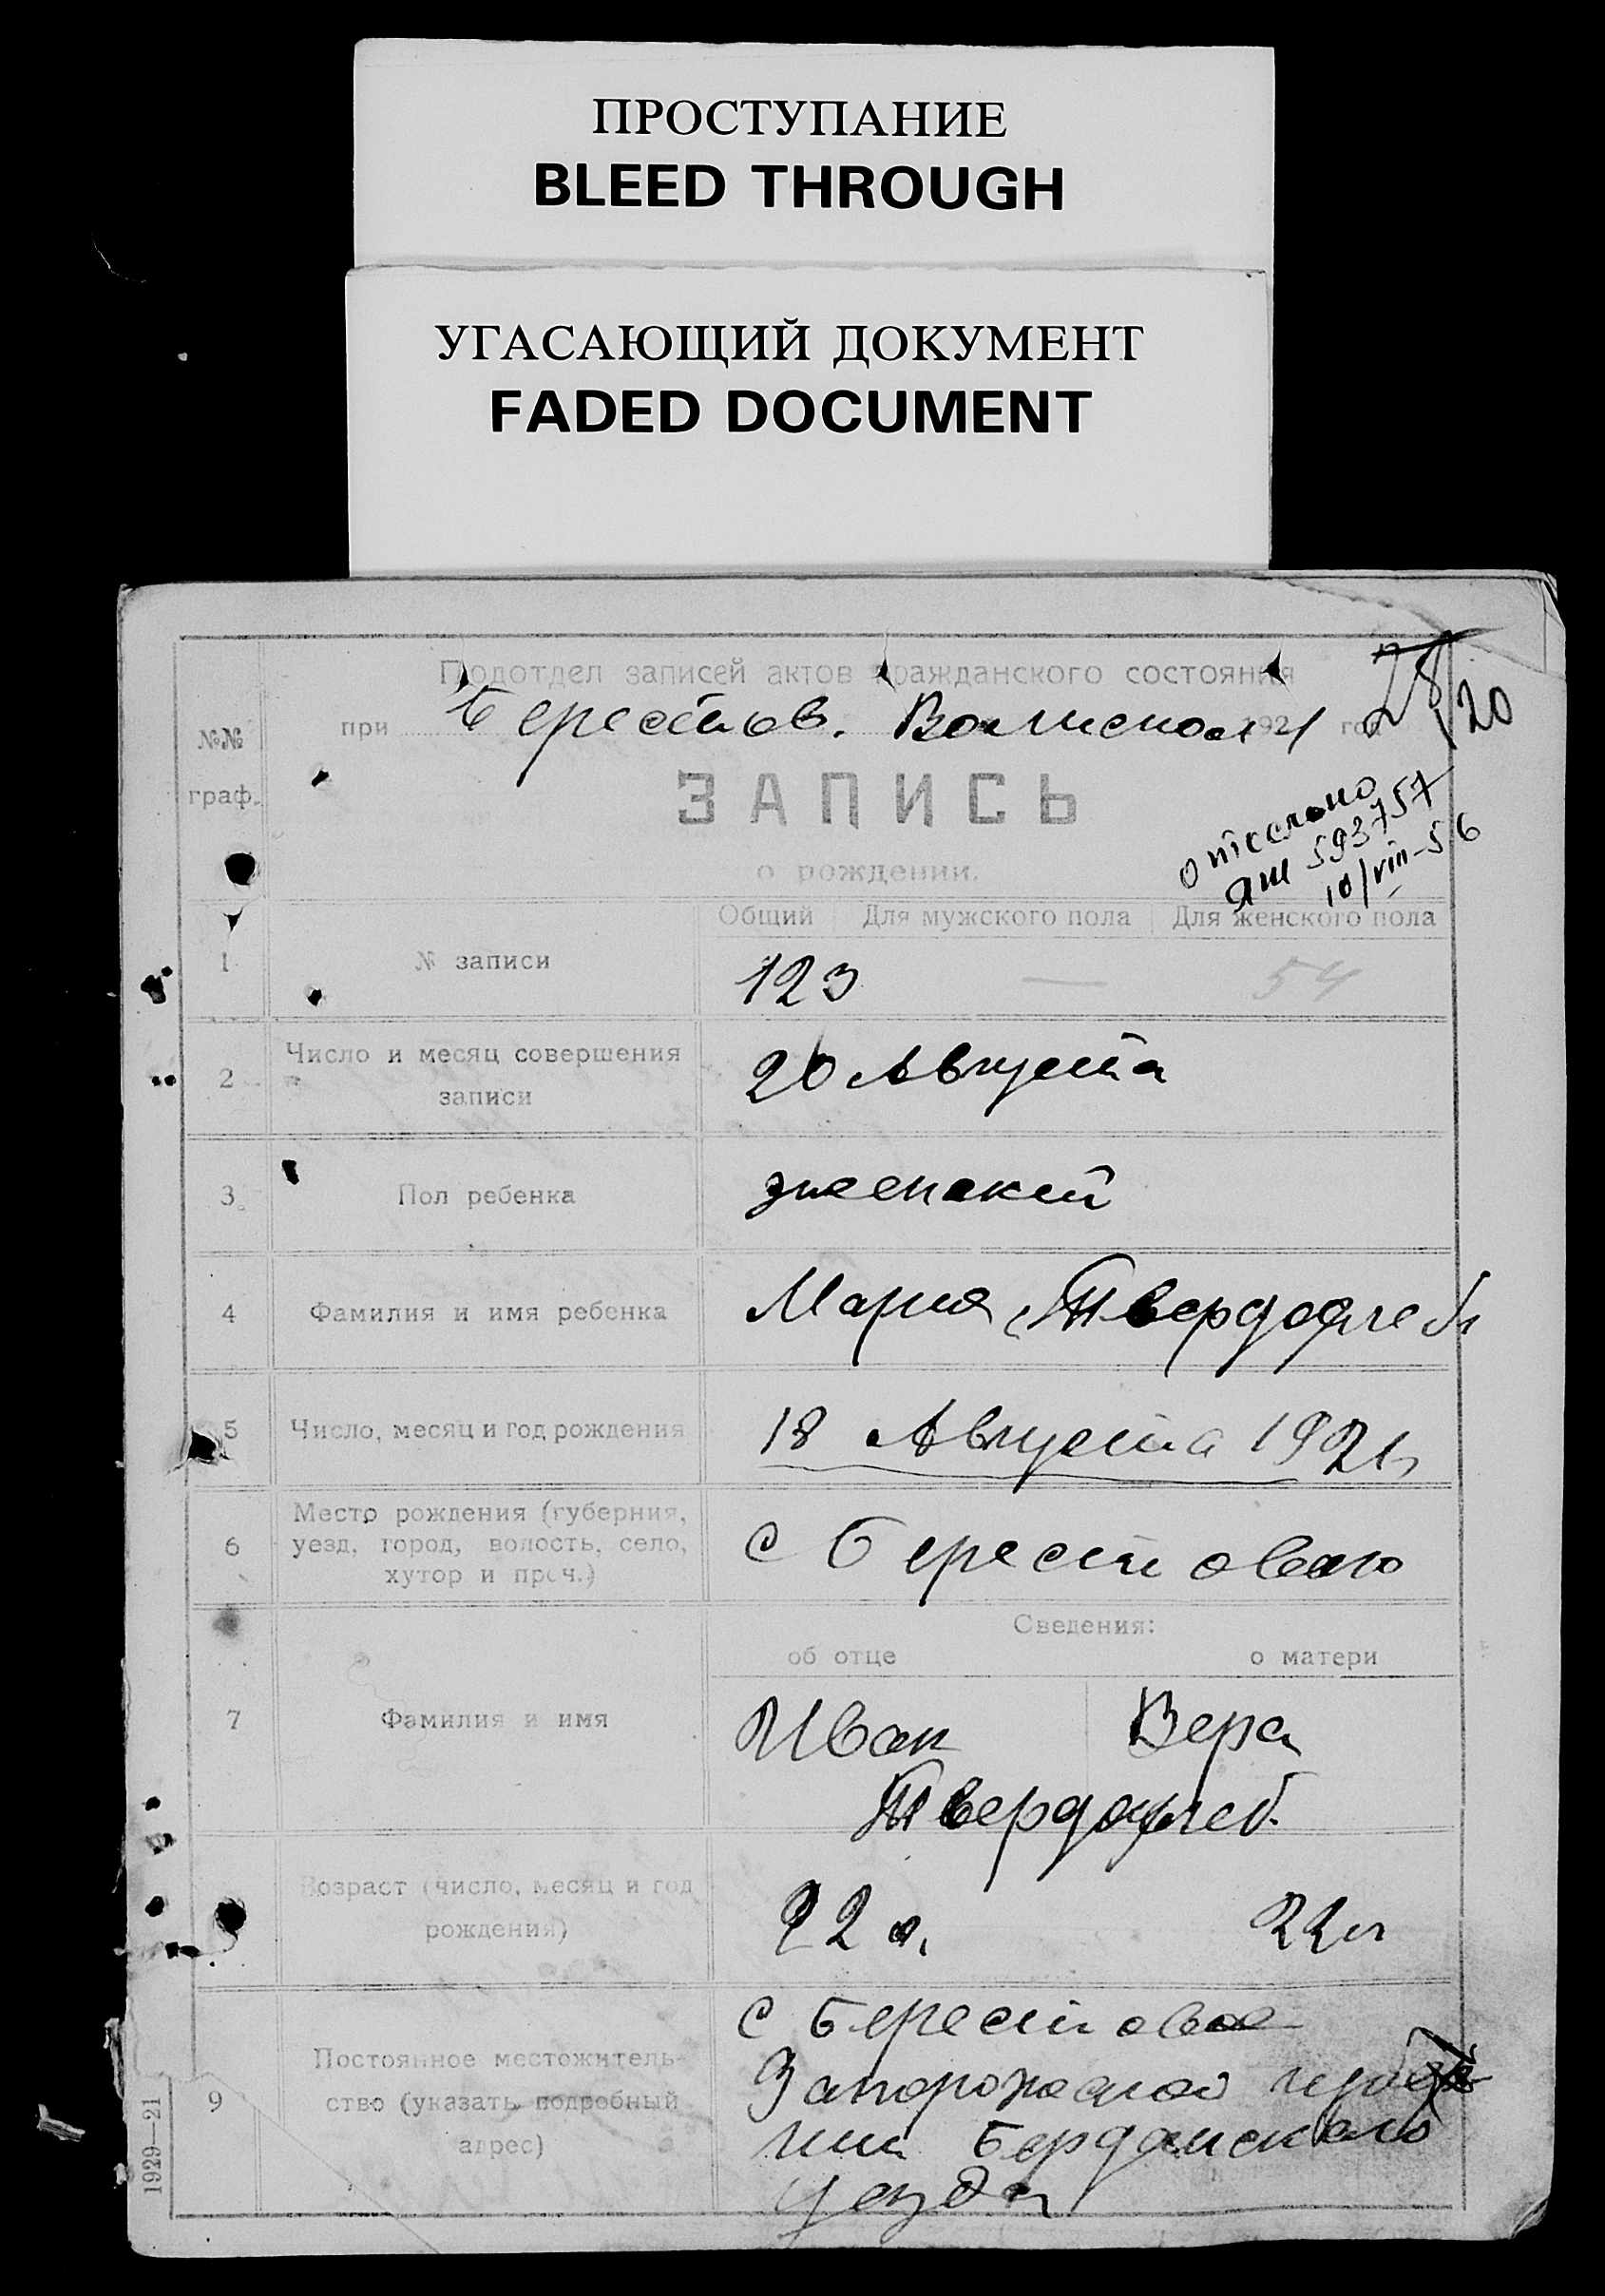 ПРОСТУПАНИЕ
BLEED THROUGH
УГАСАЮЩИЙ ДОКУМЕНТ
FADED DOCUMENT
Подотдел записей актов гражданского состояния
28/20
при Берестов. Волисполк 1921 год
№№
граф.
ЗАПИСЬ
593757
10/VIII-56
о рождении.
Общий Для мужского пола Для женского пола
1 № записи 123 — 54
2 Число и месяц совершения записи 20 Августа
3 Пол ребенка женский
4 Фамилия и имя ребенка Мария Твердохлеб
5 Число, месяц и год рождения 18 Августа 1921
6 Место рождения (губерния,
уезд, город, волость, село,
хутор и проч.) с Берестового
Сведения:
об отце о матери
7 Фамилия и имя Иван Вера
Твердохлеб.
Возраст (число, месяц и год
рождения) 22 л. 22 л
9 Постоянное местожитель-
ство (указать подробный
адрес)
с Берестовое
Запорожской губер
нии Бердянского
уезда
1929—21